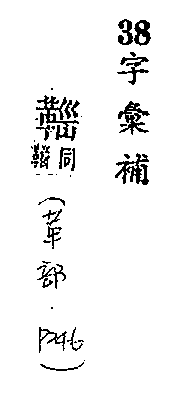 38字彙補
同
(革部.P246)